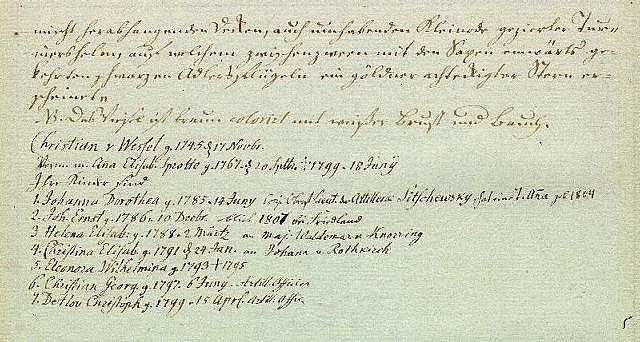 nicht herabhangenden Decken, auch umhabenden Kleinode gezierter Tur-
niershelm, auf welchem zwischen zween mit den Saxen einwärts ge-
kehrten schwarzen Adlersflügeln ein göldner achteckigter Stern er-
scheinet.
NB. Das ist braun colorirt mit weißer Brust und Bauch.
Christian v Wessel g. 1745 § 17 Novbr.
Verm. m. Ana Elisab. Sprotte g. 1767. § 20 Sptbr. 1799. 18 Junÿ
Ihre Kinder sind
1. Johanna Dorothea g. 1785. 14 Juny Obrist Lieut. der Attillerie 1. Ana 1804
2. Joh. Ernst g. 1786. 10 Decbr. 1807 in Finland
3 Helena Elisab. g. 1788. 2 Märtz an Maj. Woldemar v Knorring
4. Christina Elisab. g. 1791 § 24 Jan. an Johann v. Rothkirch
5. Eleonora Wilhelmina g. 1793 † 1795
6. Christian Georg. g. 1797. 6 Juny. Artill. Officier
7. Detlov Christoph g. 1799. 15 Aprl. Artill. Offic.
5